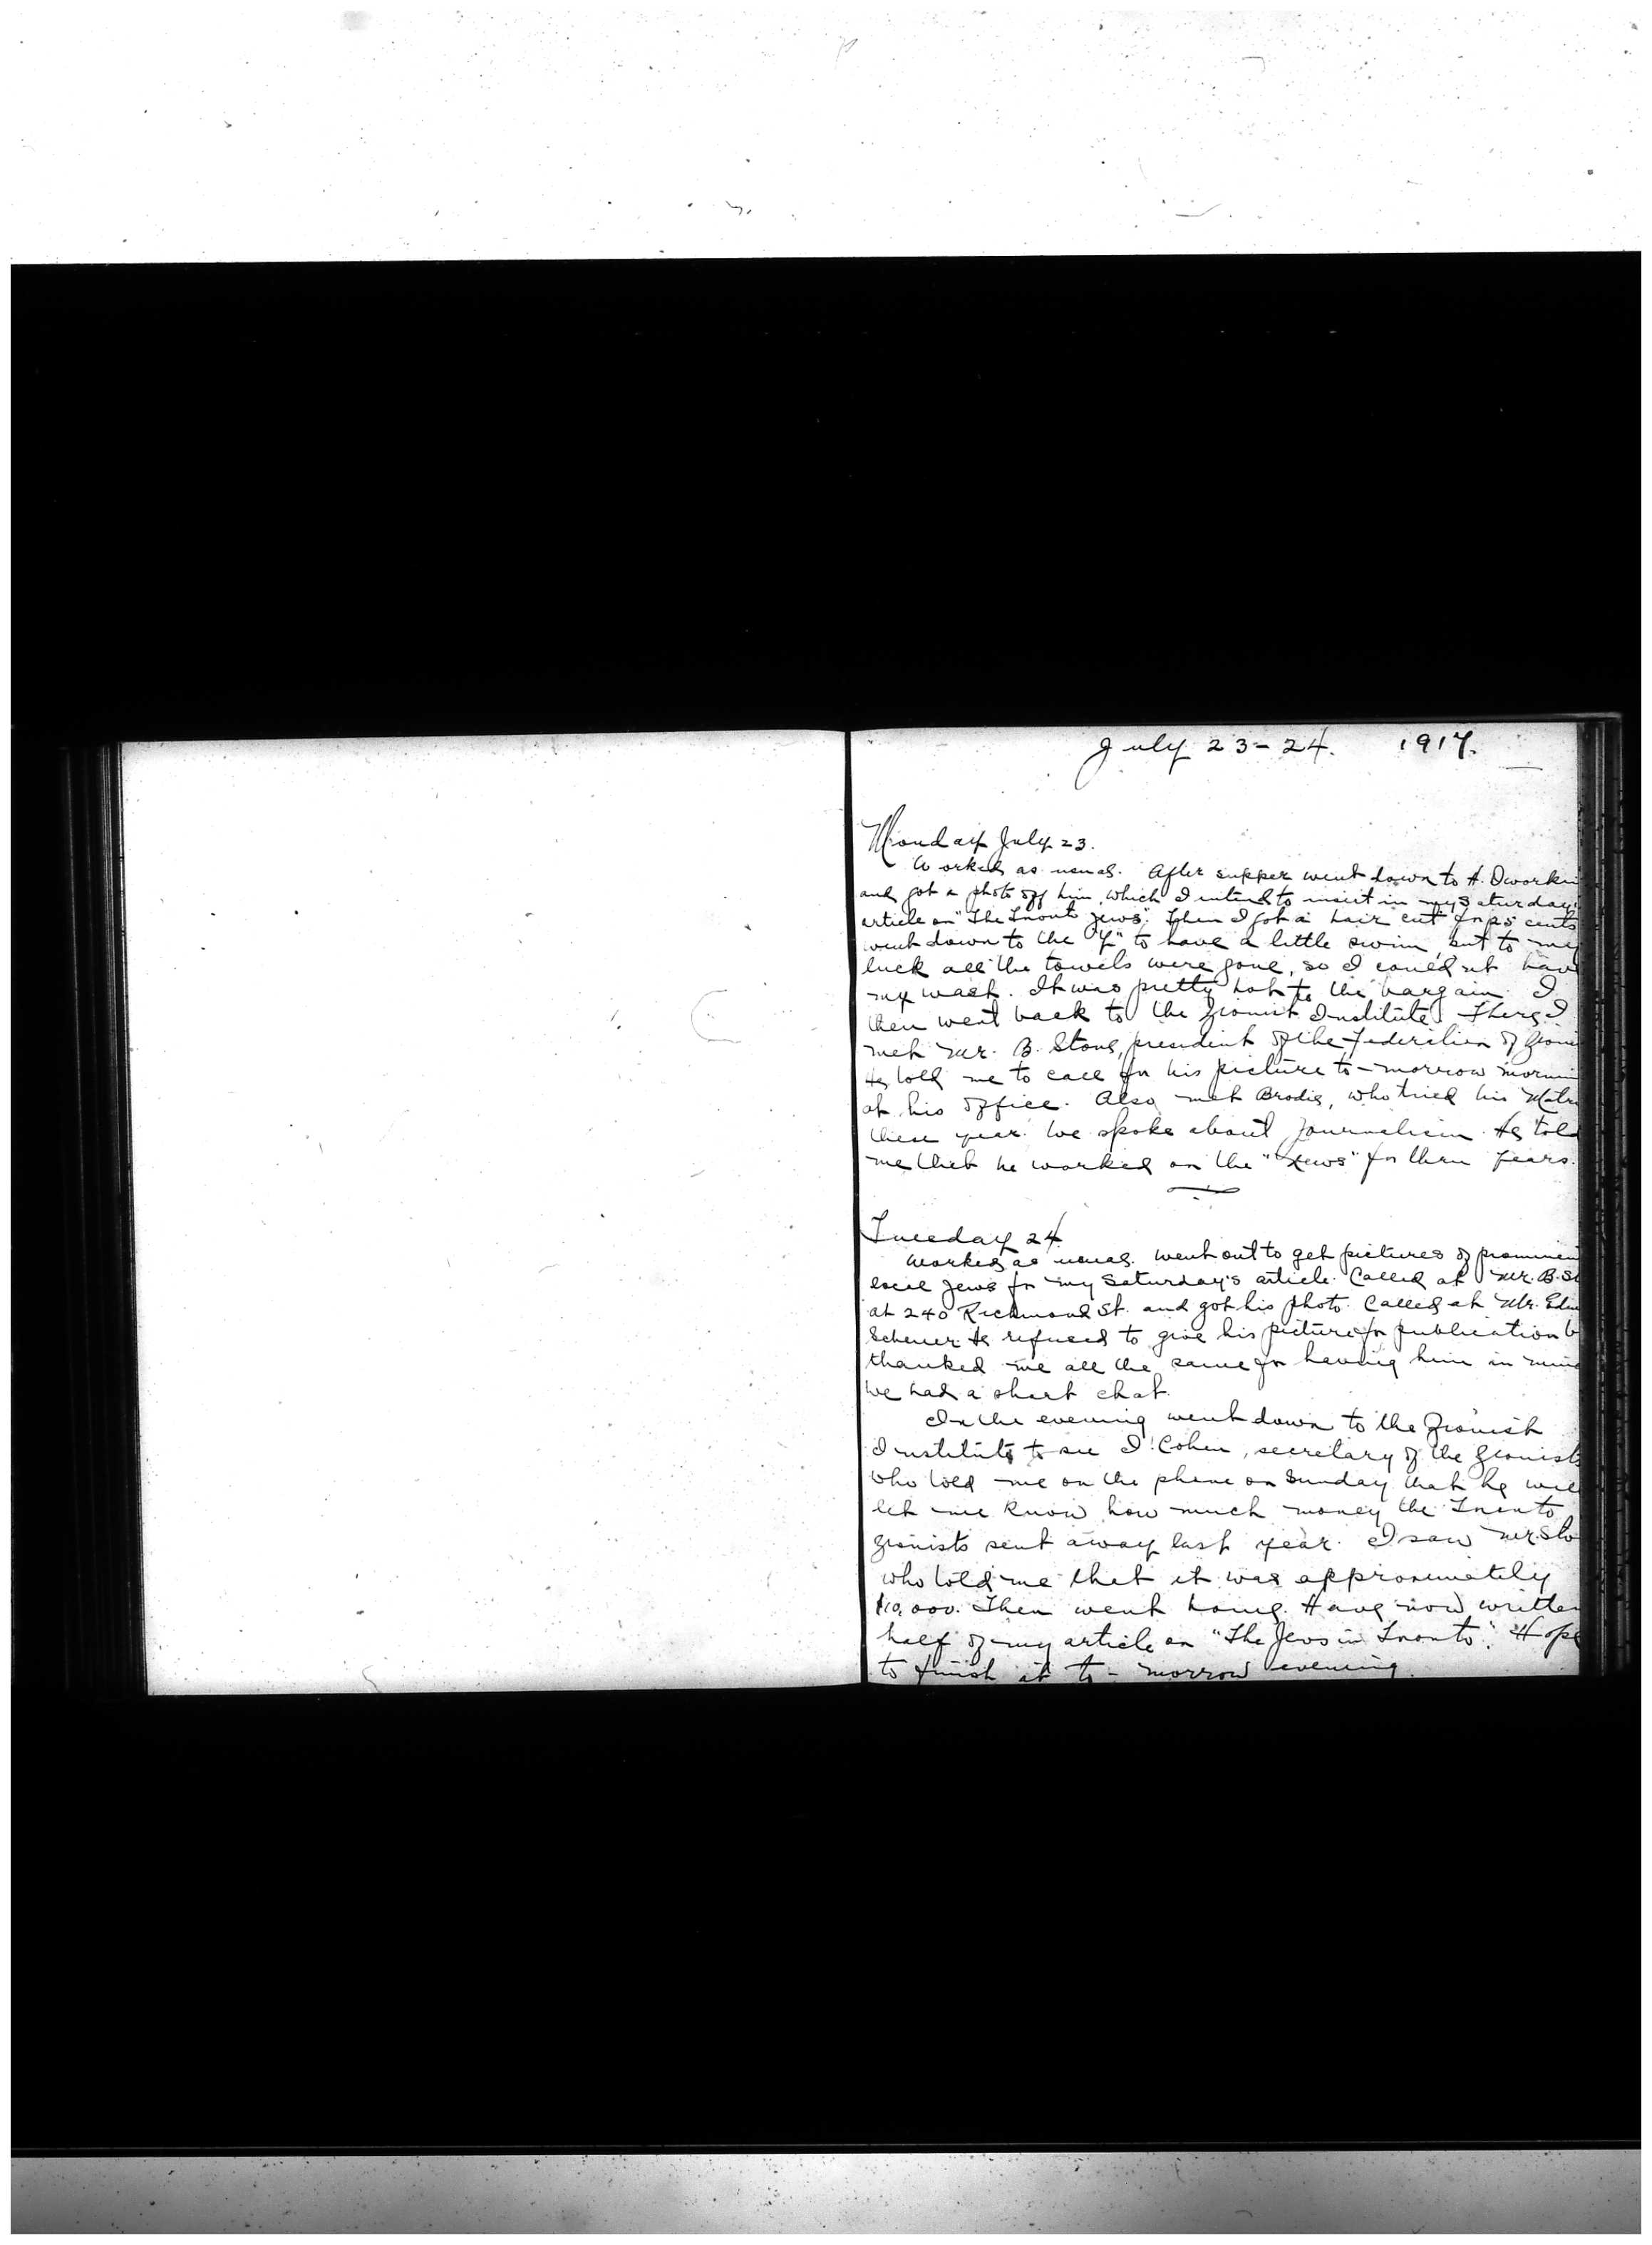 July 23-24. 1917.
Monday July 23.
Worked as usual. After supper went down to H. Dworkin
and got a photo off him, which I intend to insert in my Saturday's
article on "The Toronto Jews". Then I got a hair cut for 25 cents
went down to the "Y" to have a little swim, but to my
luck all the towels were gone, so I could'nt have
my wash. It was pretty hot to the bargain. I
then went back to the Zionist Institute. There I
met Mr. B. Stone, president of the Federation of Zioni
He told me to call for his picture to-morrow mornin
at his office. Also met Brodie, who tried his Matri
these year. We spoke about journalism. He told
me that he worked on the "News" for three years.
Tuesday 24
Worked as usual. Went out to get pictures of prominen
local Jews for my Saturday's article. Called at Mr. B. St
at 240 Richmond St. and got his photo. Called at Mr. Edm
Scheuer. He refused to give his picture for publication b
thanked me all the same for having him in mind
We had a short chat.
In the evening went down to the Zionist
Institute to see I. Cohen, secretary of the Zionists
who told me on the phone on Sunday that he will
let me know how much money the Toronto
Zionists sent away last year. I saw Mr. Sto
who told me that it was approximately
$10,000. Then went home. Have now written
half of my article on "The Jews in Toronto". Hope
to finish it to-morrow evening.